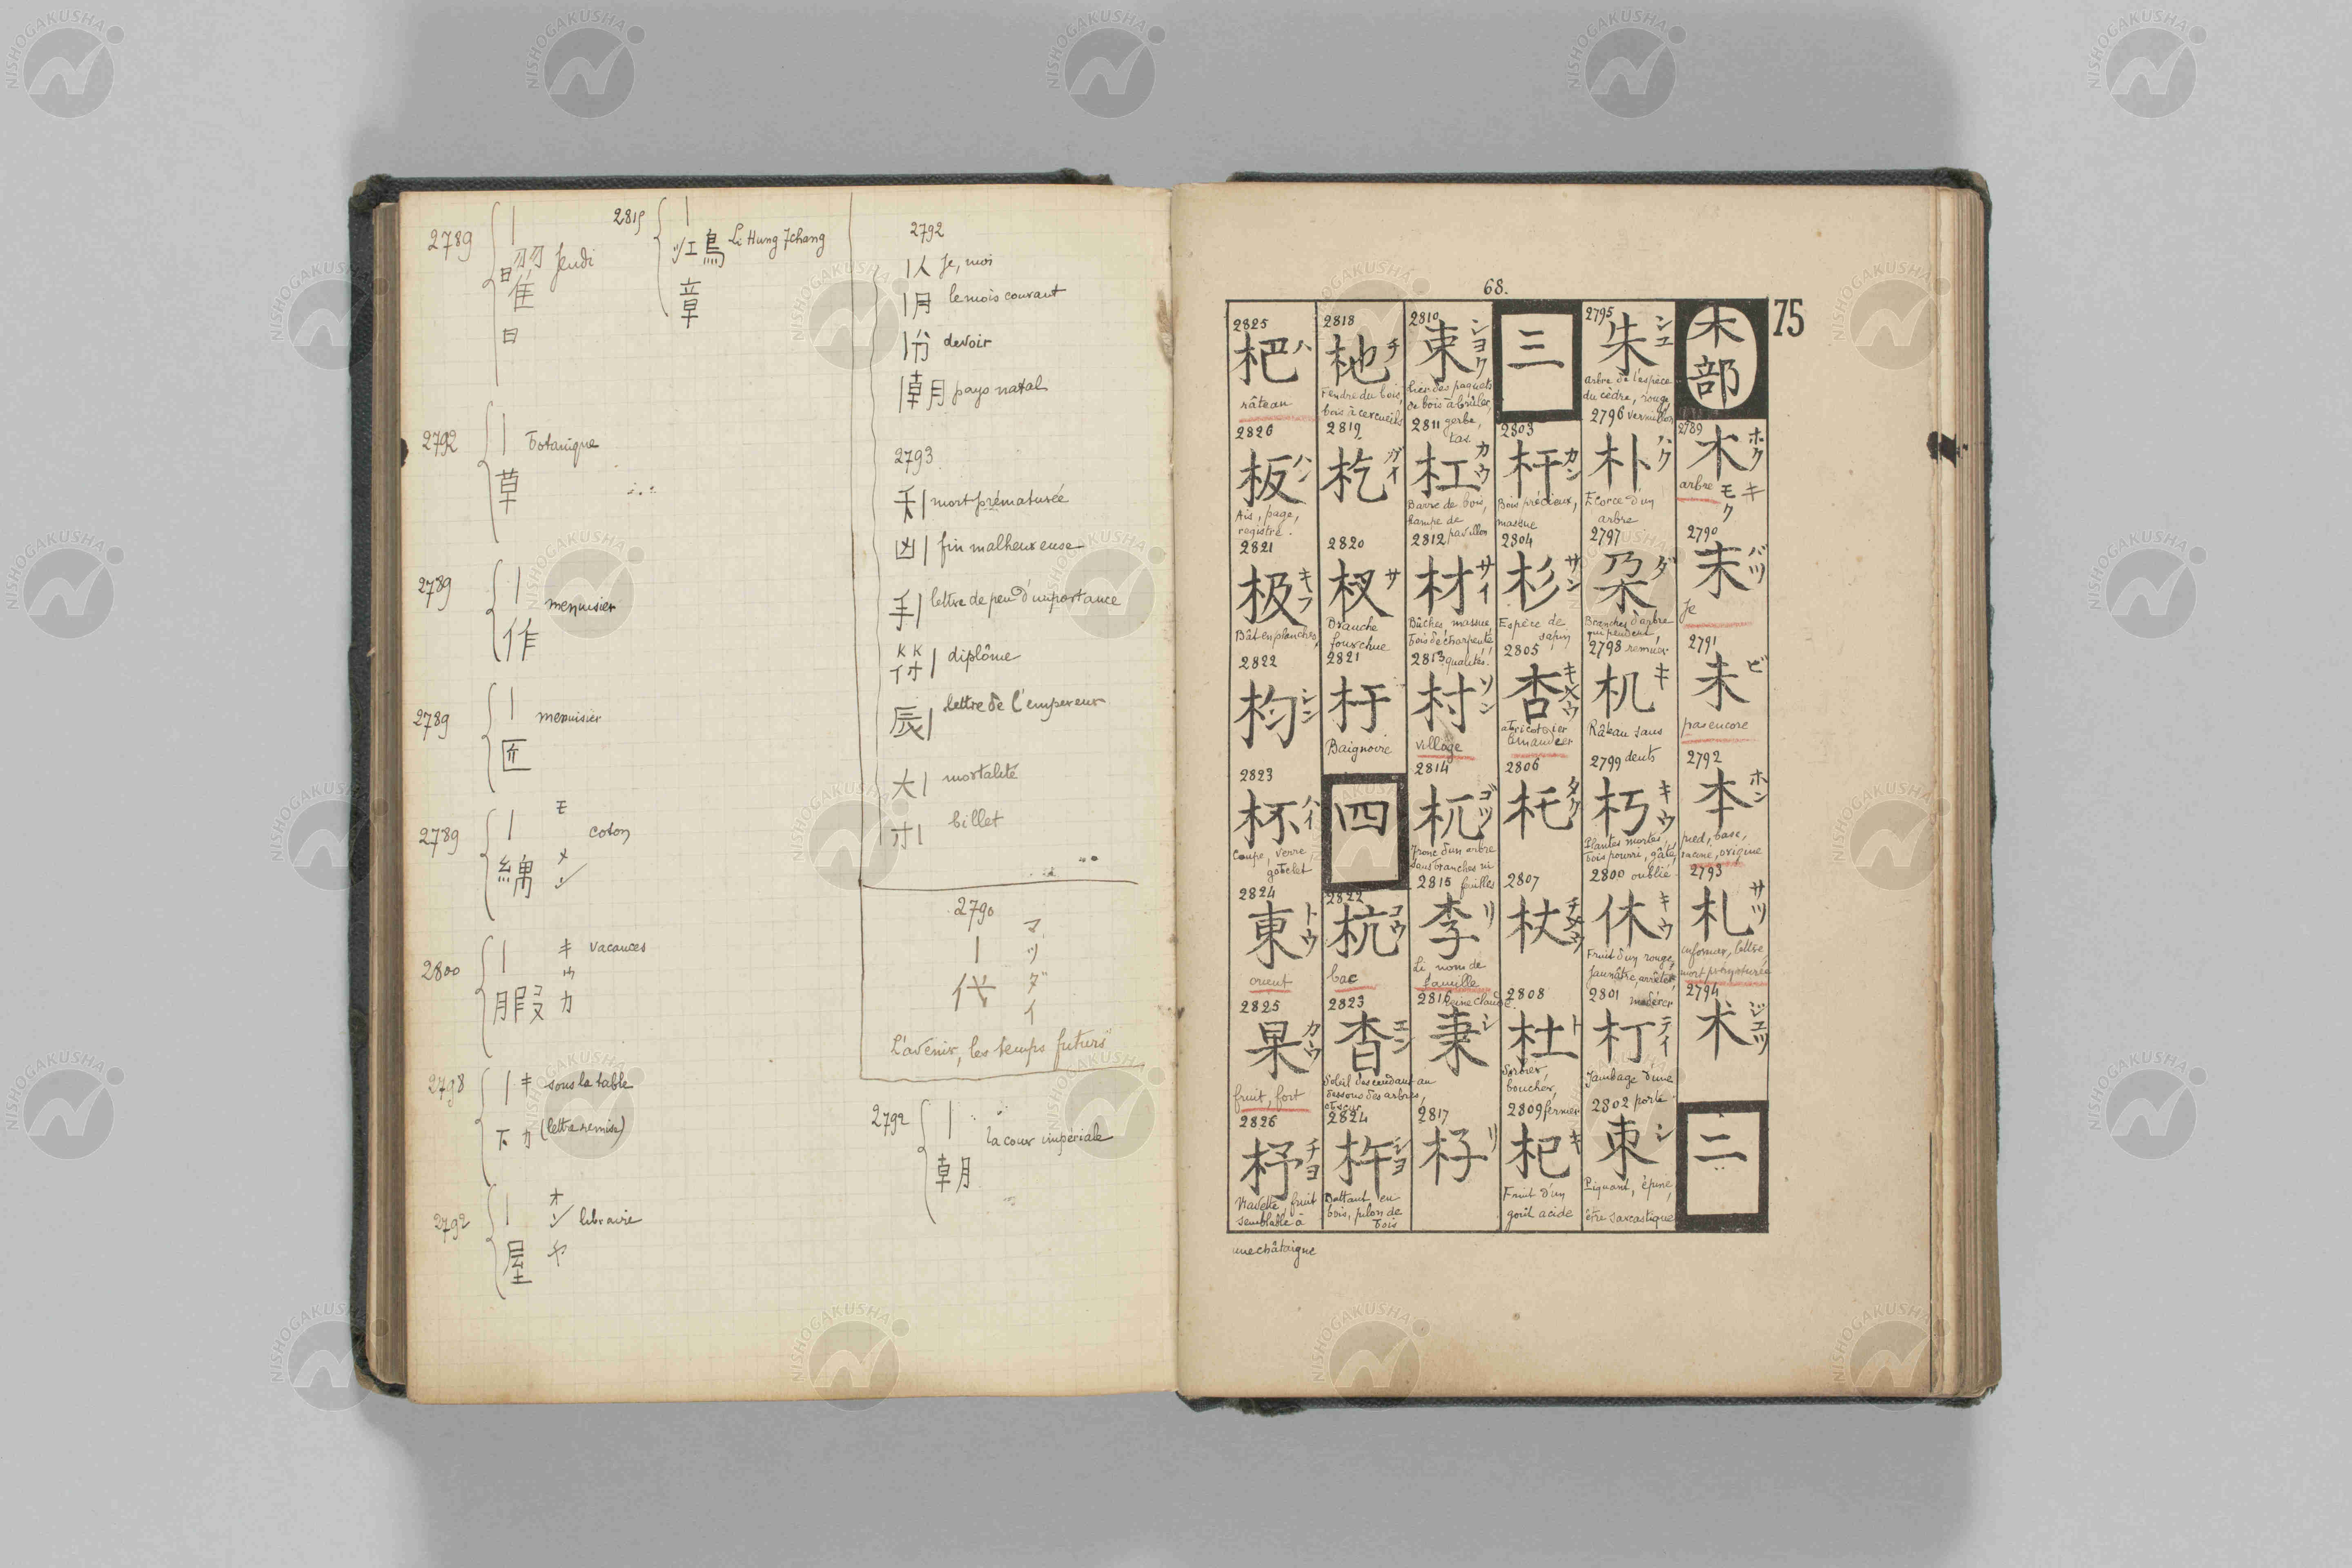 2789
｜
曜
日
Jeudi
2815
｜
鴻
章
Li Hung Tchang
2792
｜
草
Botanique
2789
｜
作
menuisier
2789
｜
匠
menuisier
2789
｜ モ
綿 メン
coton
2800
｜ キウ
暇 カ
vacances
2798
｜ キ
下 カ
sous la table
(lettre remise)
2792
｜ ホン
屋 ヤ
librairie
2792
｜人 Je, moi
｜月 le mois courant
｜分 devoir
｜朝 pays natal
2793
夭｜ mort prématurée
凶｜ fin malheureuse
手｜ lettre de peu d'importance
diplôme
辰｜ lettre de l'empereur
大｜ mortalité
billet
2790
｜ マツ
代 ダイ
L'avenir, les temps futurs
2792
｜
朝
la cour impériale
68.
75
木部
2789
木 ホク モク キ
arbre
2790
末 バツ
Je
2791
未 ビ
pas encore
2792
本 ホン
pied, base,
racine, origine
2793
札 サツ
informer, lettre,
mort prématurée
2794
朮 ジユツ
二
2795
朱 シユ
arbre de l'espèce
du cèdre, rouge,
vermillon
2796
朴 ハク
Ecorce d'un
arbre
2797
朶 ダ
Branches d'arbre
qui pendent,
remuer
2798
机 キ
Râteau sans
dents
2799
朽 キウ
Plantes mortes,
bois pourri, gâté,
oublié
2800
休 キウ
Fruit d'un rouge
jaunâtre, arrêter,
modérer
2801
朾 テイ
Jambage d'une
porte
2802
朿 シ
Piquant, épine,
être sarcastique
三
2803
杆 カン
Bois précieux,
massue
2804
杉 サン
Espèce de
sapin
2805
杏 キヤウ
abricotier
amandier
2806
杔 タク
2807
杖 チヤウ
2808
杜 ト
Sorbier,
boucher,
fermer
2809
杞 キ
Fruit d'un
goût acide
2810
束 シヨク
Lier des paquets
de bois à brûler,
gerbe,
tas
2811
杠 カウ
Barre de bois,
hampe de
pavillon
2812
材 サイ
Bûches, massue,
bois de charpente,
qualités.
2813
村 ソン
village
2814
杌 ゴツ
Tronc d'un arbre
sans branches ni
feuilles
2815
李 リ
Li nom de
famille
Reine claude
2816
秉 シ
2817
杍 リ
2818
杝 チ
Fendre du bois,
bois à cercueils
2819
杚 ガイ
2820
杈 サ
Branche
fourchue
2821
杅
Baignoire
四
2822
杭 コウ
bac
2823
杳 エン
Soleil descendant au
dessous des arbres,
obscur
2824
杵 シヨ
Battant en
bois, pilon de
bois
2825
杷 ハ
râteau
2826
板 ハン
Ais, page,
registre.
2821
极 キフ
Bât en planches
2822
枃 シン
2823
杯 ハイ
Coupe, verre,
gobelet
2824
東 トウ
orient
2825
果 カウ
fruit, fort
2826
杼 チヨ
Navette, fruit
semblable à
une châtaigne